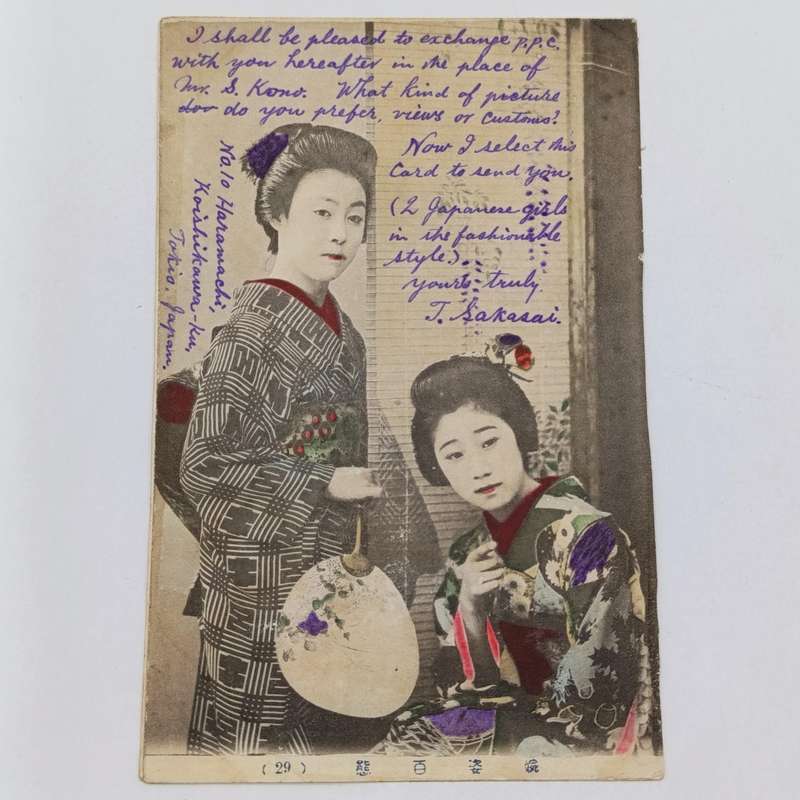 I shall be pleased to exchange p.p.c.
with you hereafter in the place of
Mr. S. Kono. What kind of picture
doo do you prefer, views or customs?
Now I select this
Card to send you.
(2 Japanese girls
in the fashionable
style.)
yours truly
T. Sakasai.
No 10 Haramachi,
Koishikawa-ku,
Tokio. Japan.
(29) 態百姿婉